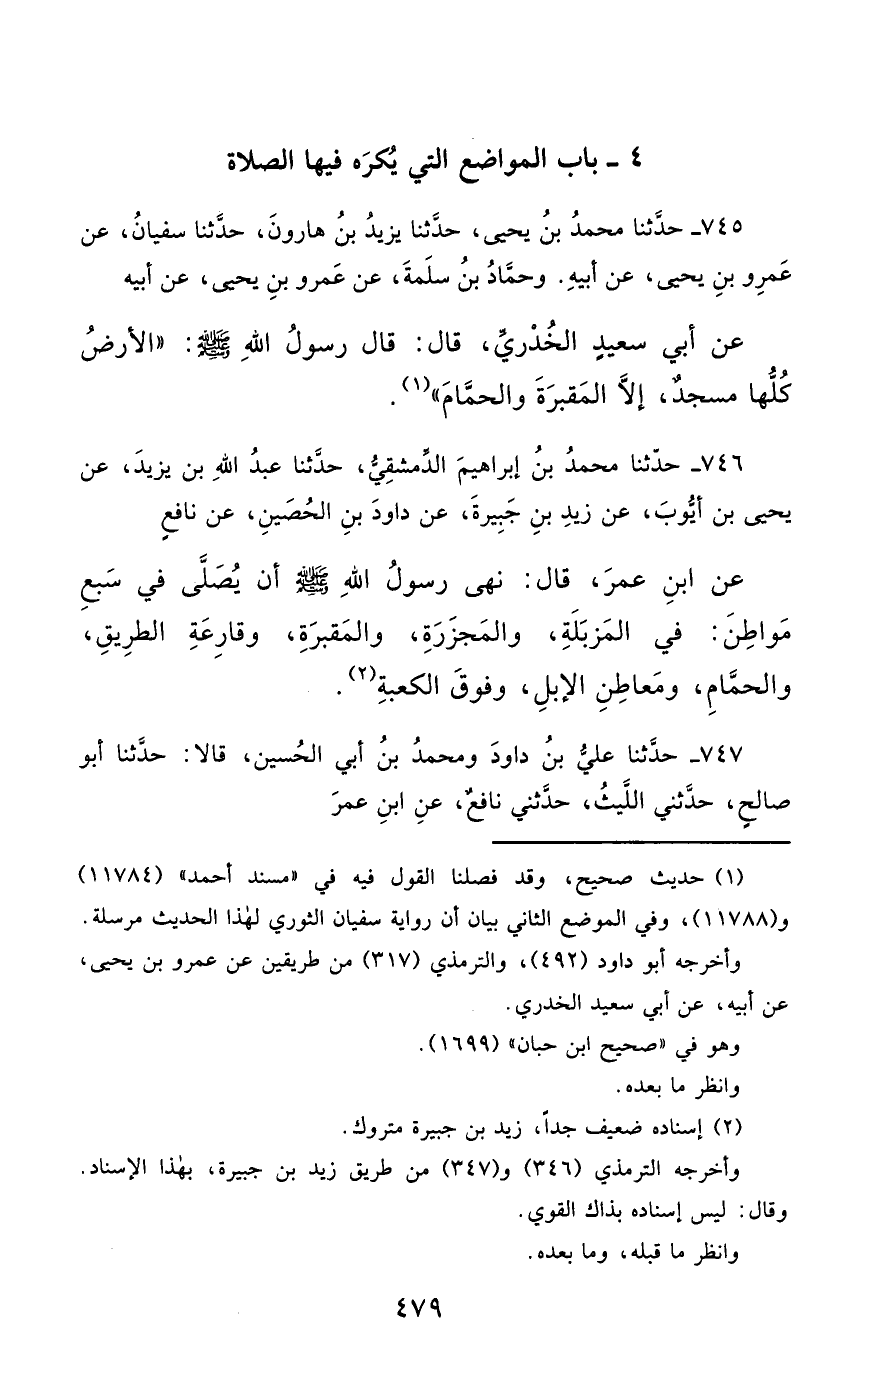 ٤ - باب المواضع التي يُكرَه فيها الصلاة
٧٤٥- حدَّثنا محمدُ بنُ يحيى، حدَّثنا يزيدُ بنُ هارونَ، حدَّثنا سفيانُ، عن
عَمرِو بنِ يحيى، عن أبيهِ. وحمَّادُ بنُ سلَمةَ، عن عَمرو بنِ يحيى، عن أبيه
عن أبي سعيدٍ الخُدْريِّ، قال: قال رسولُ اللهِ ﷺ: «الأرضُ
كُلُّها مسجدٌ، إلاَّ المَقبرَةَ والحمَّامَ»(١).
٧٤٦- حدّثنا محمدُ بنُ إبراهيمَ الدِّمشقِيُّ، حدَّثنا عبدُ اللهِ بن يزيدَ، عن
يحيى بن أيُّوبَ، عن زيدِ بنِ جَبِيرةَ، عن داودَ بنِ الحُصَينِ، عن نافعٍ
عن ابنِ عمرَ، قال: نهى رسولُ اللهِ ﷺ أن يُصَلَّى في سَبعِ
مَواطِنَ: في المَزبَلَةِ، والمَجزَرَةِ، والمَقبرَةِ، وقارِعَةِ الطريقِ،
والحمَّامِ، ومَعاطِنِ الإبلِ، وفوقَ الكعبةِ(٢).
٧٤٧- حدَّثنا عليُّ بنُ داودَ ومحمدُ بنُ أبي الحُسين، قالا: حدَّثنا أبو
صالحٍ، حدَّثني اللَّيثُ، حدَّثني نافعٌ، عنِ ابنِ عمرَ
(١) حديث صحيح، وقد فصلنا القول فيه في «مسند أحمد» (١١٧٨٤)
و(١١٧٨٨)، وفي الموضع الثاني بيان أن رواية سفيان الثوري لهٰذا الحديث مرسلة.
وأخرجه أبو داود (٤٩٢)، والترمذي (٣١٧) من طريقين عن عمرو بن يحيى،
عن أبيه، عن أبي سعيد الخدري.
وهو في «صحيح ابن حبان» (١٦٩٩).
وانظر ما بعده.
(٢) إسناده ضعيف جداً، زيد بن جبيرة متروك.
وأخرجه الترمذي (٣٤٦) و(٣٤٧) من طريق زيد بن جبيرة، بهٰذا الإسناد.
وقال: ليس إسناده بذاك القوي.
وانظر ما قبله، وما بعده.
٤٧٩